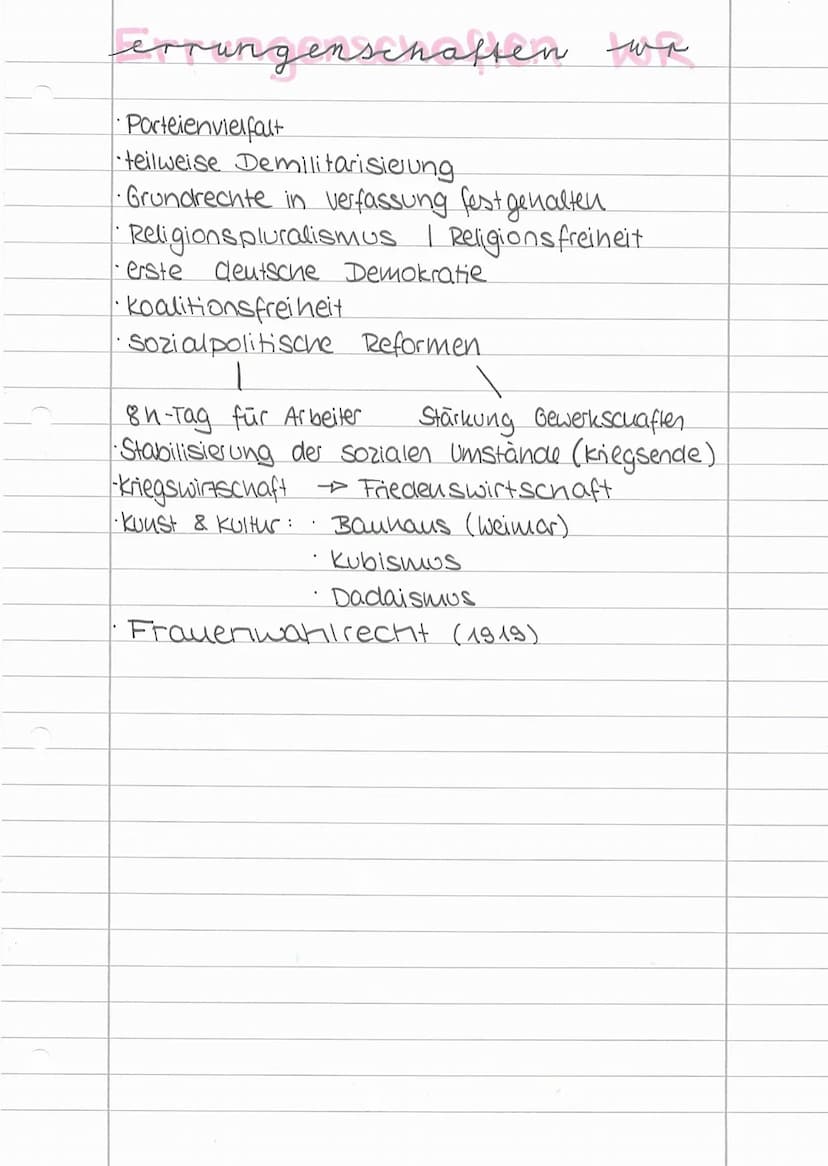 Errungenschaften WR
· Parteienvielfalt
· teilweise Demilitarisierung
· Grundrechte in Verfassung festgehalten
· Religionspluralismus | Religionsfreiheit
· erste deutsche Demokratie
· Koalitionsfreiheit
· Sozialpolitische Reformen
8h-Tag für Arbeiter Stärkung Gewerkschaften
· Stabilisierung der sozialen Umstände (Kriegsende)
· Kriegswirtschaft → Friedenswirtschaft
· Kunst & Kultur: · Bauhaus (Weimar)
· Kubismus
· Dadaismus
· Frauenwahlrecht (1919)